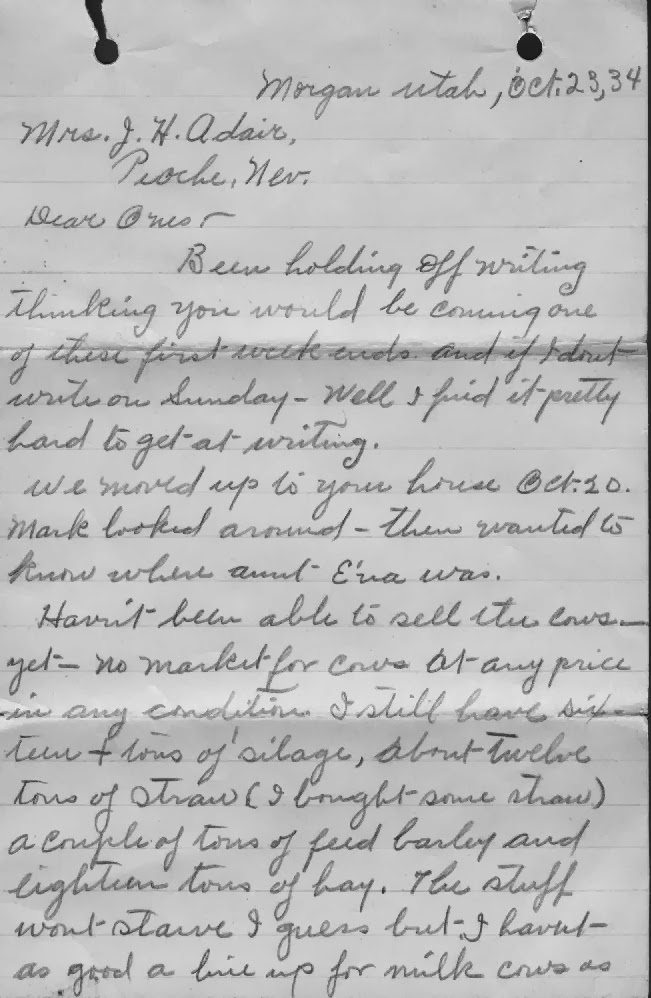 Morgan Utah, Oct. 23, 34
Mrs. J. H. Adair,
Pioche, Nev.
Dear Ones –
Been holding off writing
thinking you would be coming one
of these first week ends. and if I dont
write on Sunday – Well I find it pretty
hard to get at writing.
We moved up to your house Oct. 20.
Mark looked around – then wanted to
know where aunt E'na was.
Havn't been able to sell the cows –
yet – no market for cows at any price
in any condition. I still have six-
teen + tons of silage, about twelve
tons of straw (I bought some straw)
a couple of tons of feed barley and
eighteen tons of hay. The stuff
wont starve I guess but I havent
as good a line up for milk cows as